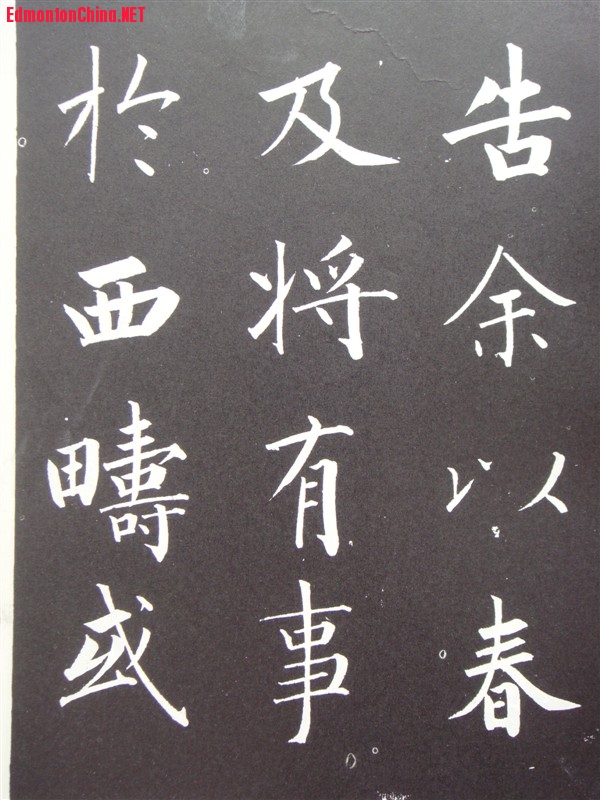 EdmontonChina.NET
告余以春
及将有事
於西疇或